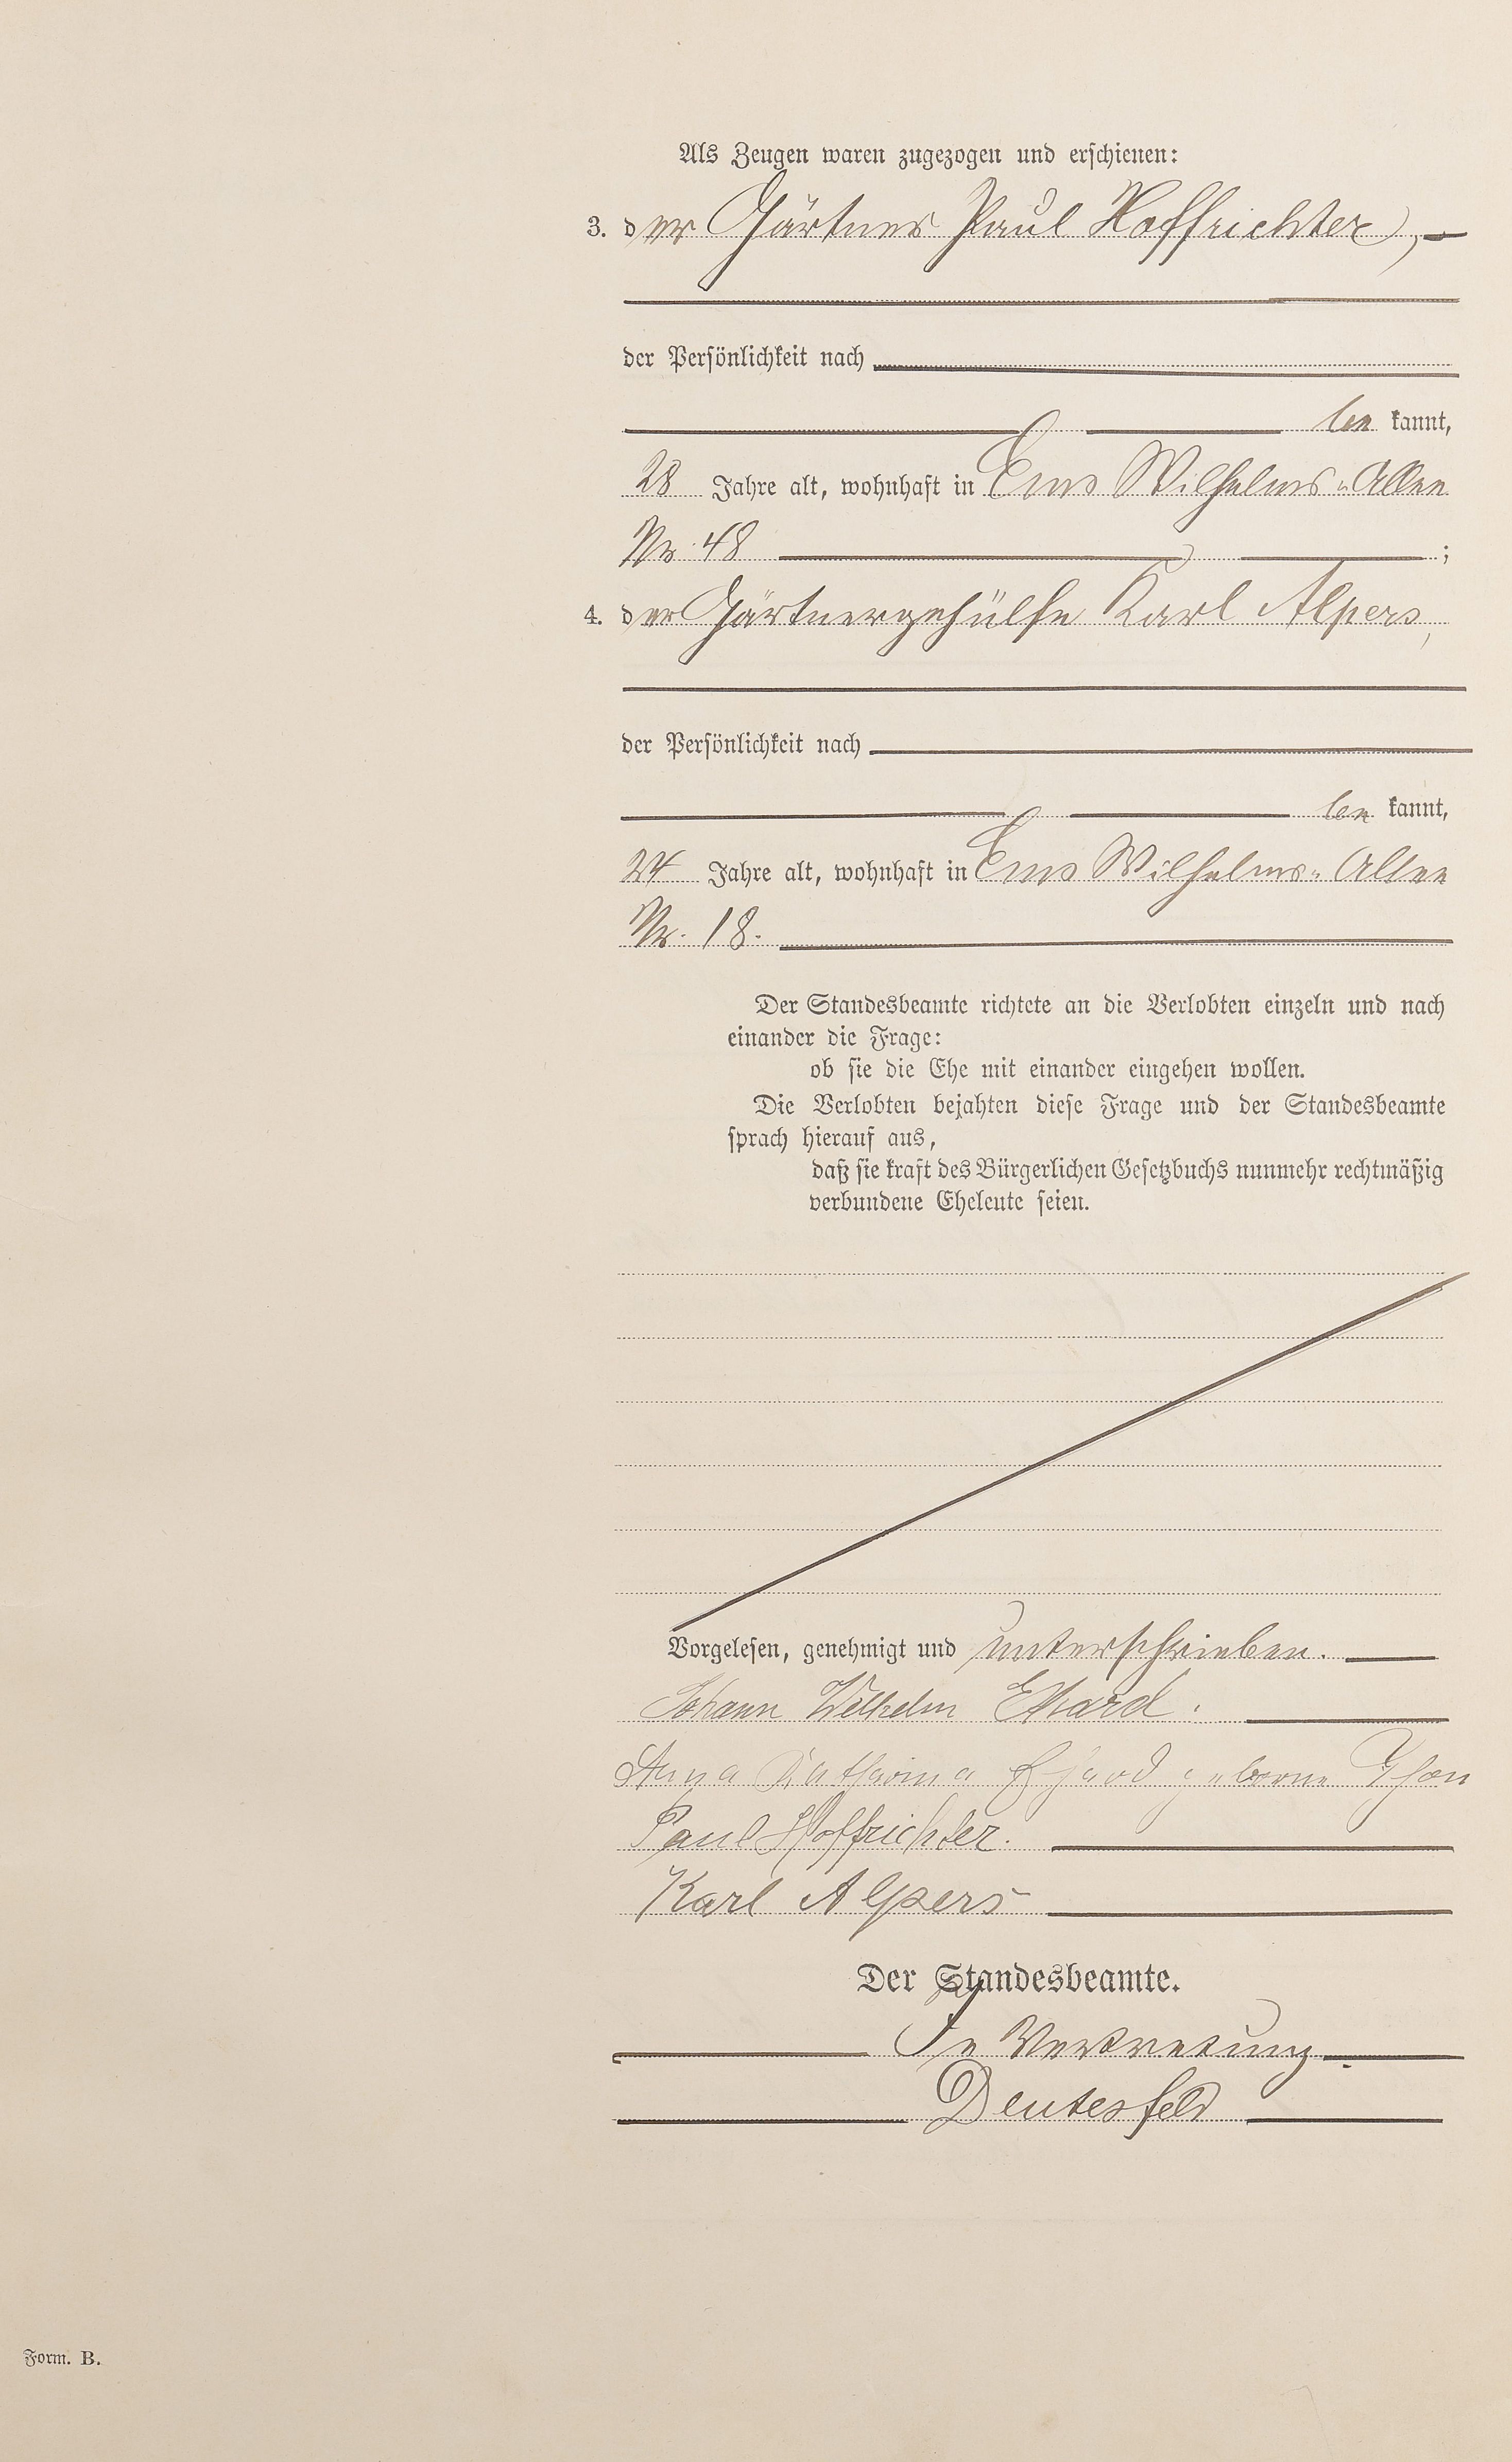 Als Zeugen waren zugezogen und erschienen:
3. der Gärtner Paul Hoffrichter,
der Persönlichkeit nach
be kannt,
28 Jahre alt, wohnhaft in Ems Wilhelms-Allee
Nr. 48 ;
4. der Gärtnergehülfe Karl Alpers,
der Persönlichkeit nach
be kannt,
24 Jahre alt, wohnhaft in Ems Wilhelms-Allee
Nr. 18.
Der Standesbeamte richtete an die Verlobten einzeln und nach
einander die Frage:
ob sie die Ehe mit einander eingehen wollen.
Die Verlobten bejahten diese Frage und der Standesbeamte
sprach hierauf aus,
daß sie kraft des Bürgerlichen Gesetzbuchs nunmehr rechtmäßig
verbundene Eheleute seien.
Vorgelesen, genehmigt und unterschrieben.
Johann Wilhelm Ehard.
Anna Katharina Ehard geborne
Paul Hoffrichter.
Karl Alpers
Der Standesbeamte.
In Vertretung.
Deutesfeld
Form. B.